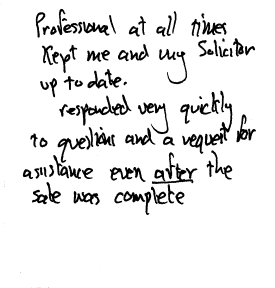 Professional at all times
Kept me and my Solicitor
up to date.
responded very quickly
to questions and a request for
assistance even after the
sale was complete